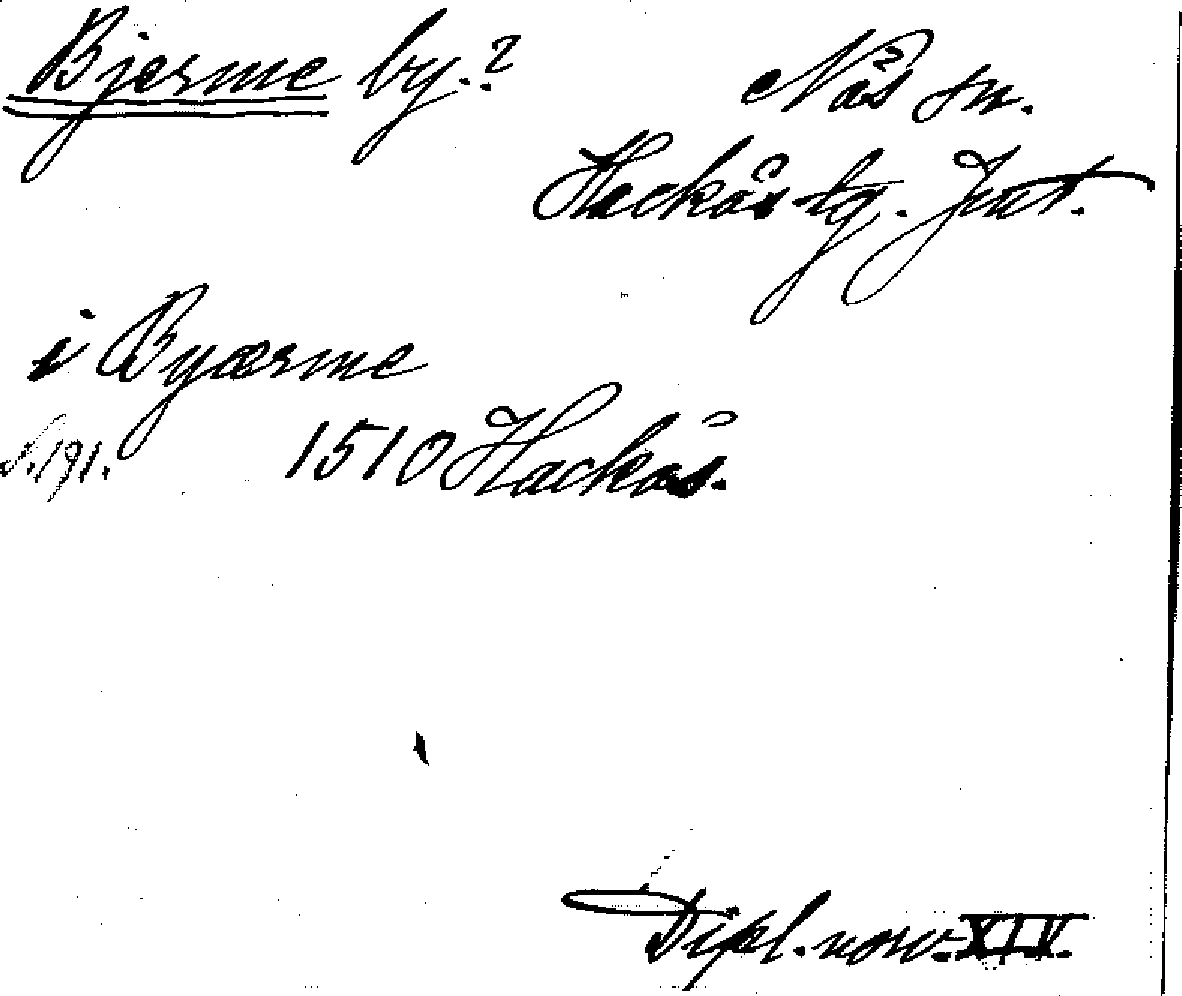 Bjerme by.? Näs sn.
Hackås tg. Jmt.
i Byærme
S. 191. 1510 Hackås.
Dipl. norv. XIV.